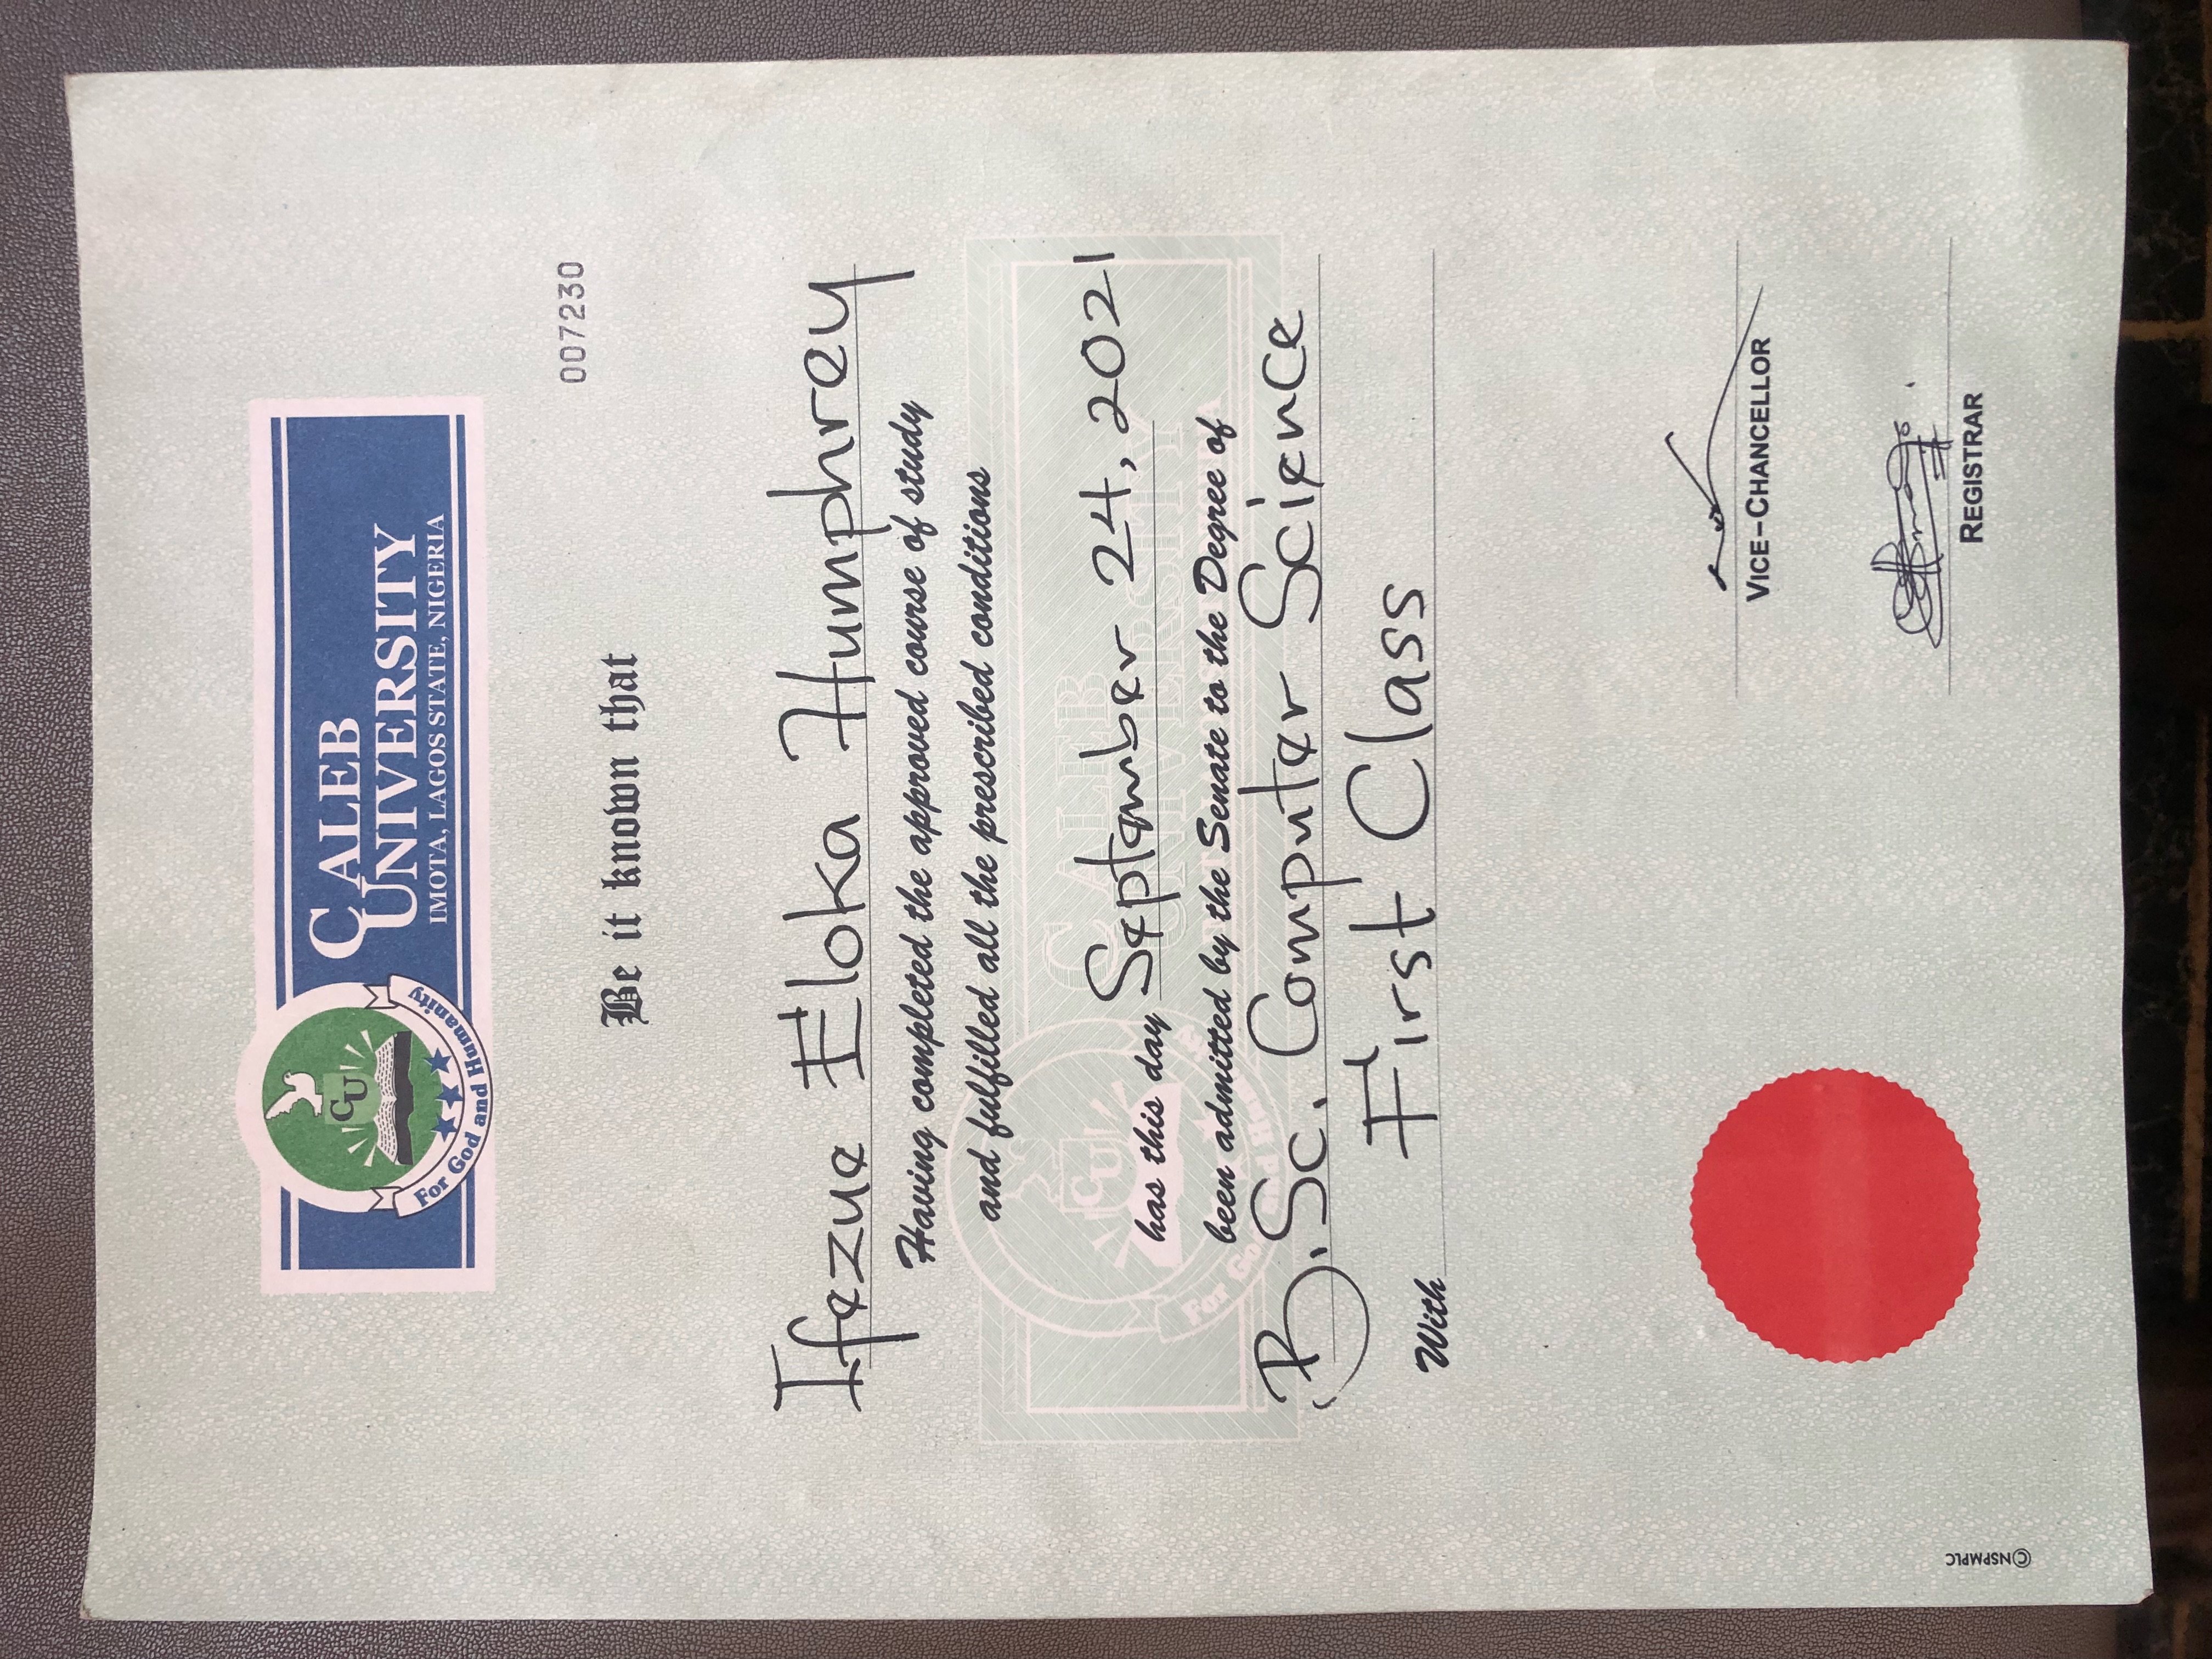 CALEB
UNIVERSITY
IMOTA, LAGOS STATE, NIGERIA
CU
For God and Humanity
007230
Be it known that
Ifezue Eloka Humphrey
Having completed the approved course of study
and fulfilled all the prescribed conditions
has this day September 24, 2021
been admitted by the Senate to the Degree of
B.Sc. Computer Science
With First Class
VICE-CHANCELLOR
REGISTRAR
©NSPMPLC